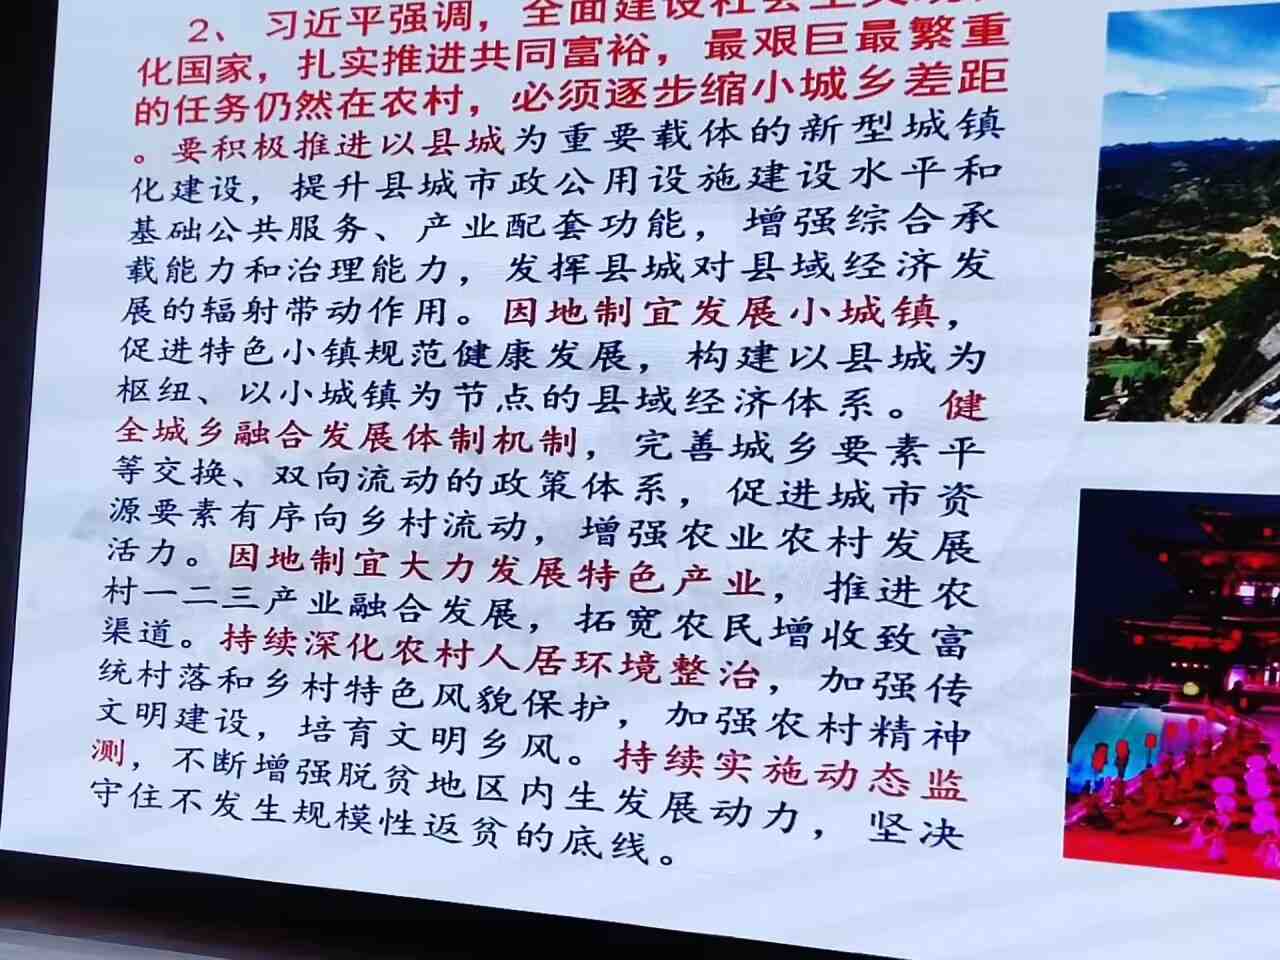 2、习近平强调，全面建设社会主义现代
化国家，扎实推进共同富裕，最艰巨最繁重
的任务仍然在农村，必须逐步缩小城乡差距
。要积极推进以县城为重要载体的新型城镇
化建设，提升县城市政公用设施建设水平和
基础公共服务、产业配套功能，增强综合承
载能力和治理能力，发挥县城对县域经济发
展的辐射带动作用。因地制宜发展小城镇，
促进特色小镇规范健康发展，构建以县城为
枢纽、以小城镇为节点的县域经济体系。健
全城乡融合发展体制机制，完善城乡要素平
等交换、双向流动的政策体系，促进城市资
源要素有序向乡村流动，增强农业农村发展
活力。因地制宜大力发展特色产业，推进农
村一二三产业融合发展，拓宽农民增收致富
渠道。持续深化农村人居环境整治，加强传
统村落和乡村特色风貌保护，加强农村精神
文明建设，培育文明乡风。持续实施动态监
测，不断增强脱贫地区内生发展动力，坚决
守住不发生规模性返贫的底线。